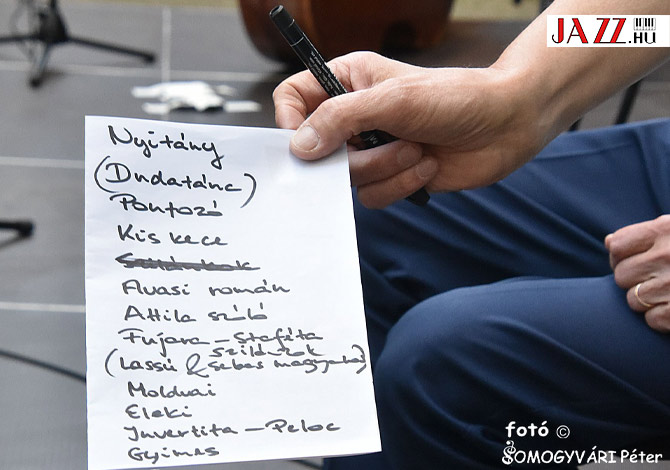 JAZZ.HU
Nyitány
(Dudatánc)
Pontozó
Kis kece
Avasi román
Attila szóló
Fujara – Staféta
szilánkok
(Lassú & sebes magyaros)
Moldvai
Eleki
Invertita – Peloc
Gyimes
fotó ©
SOMOGYVÁRI Péter